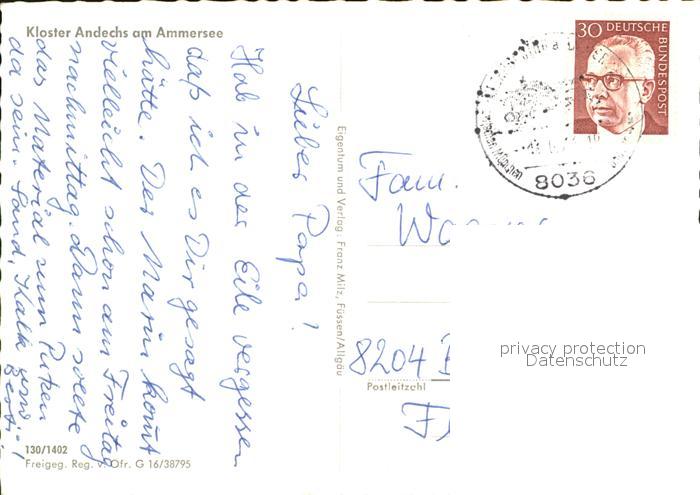 Kloster Andechs am Ammersee
Lieber Papa!
Hab in der Eile vergessen
daß ich es Dir gesagt
hätte. Der Mann kommt
vielleicht schon am Freitag
nachmittag. Dann sollte
das Material zum Putzen
da sein. Sand, Kalk und
130/1402
Freigeg. Reg. v. Ofr. G 16/38795
Eigentum und Verlag: Franz Milz, Füssen/Allgäu
30 DEUTSCHE
BUNDESPOST
8036
Fam.
8204
Postleitzahl
privacy protection
Datenschutz